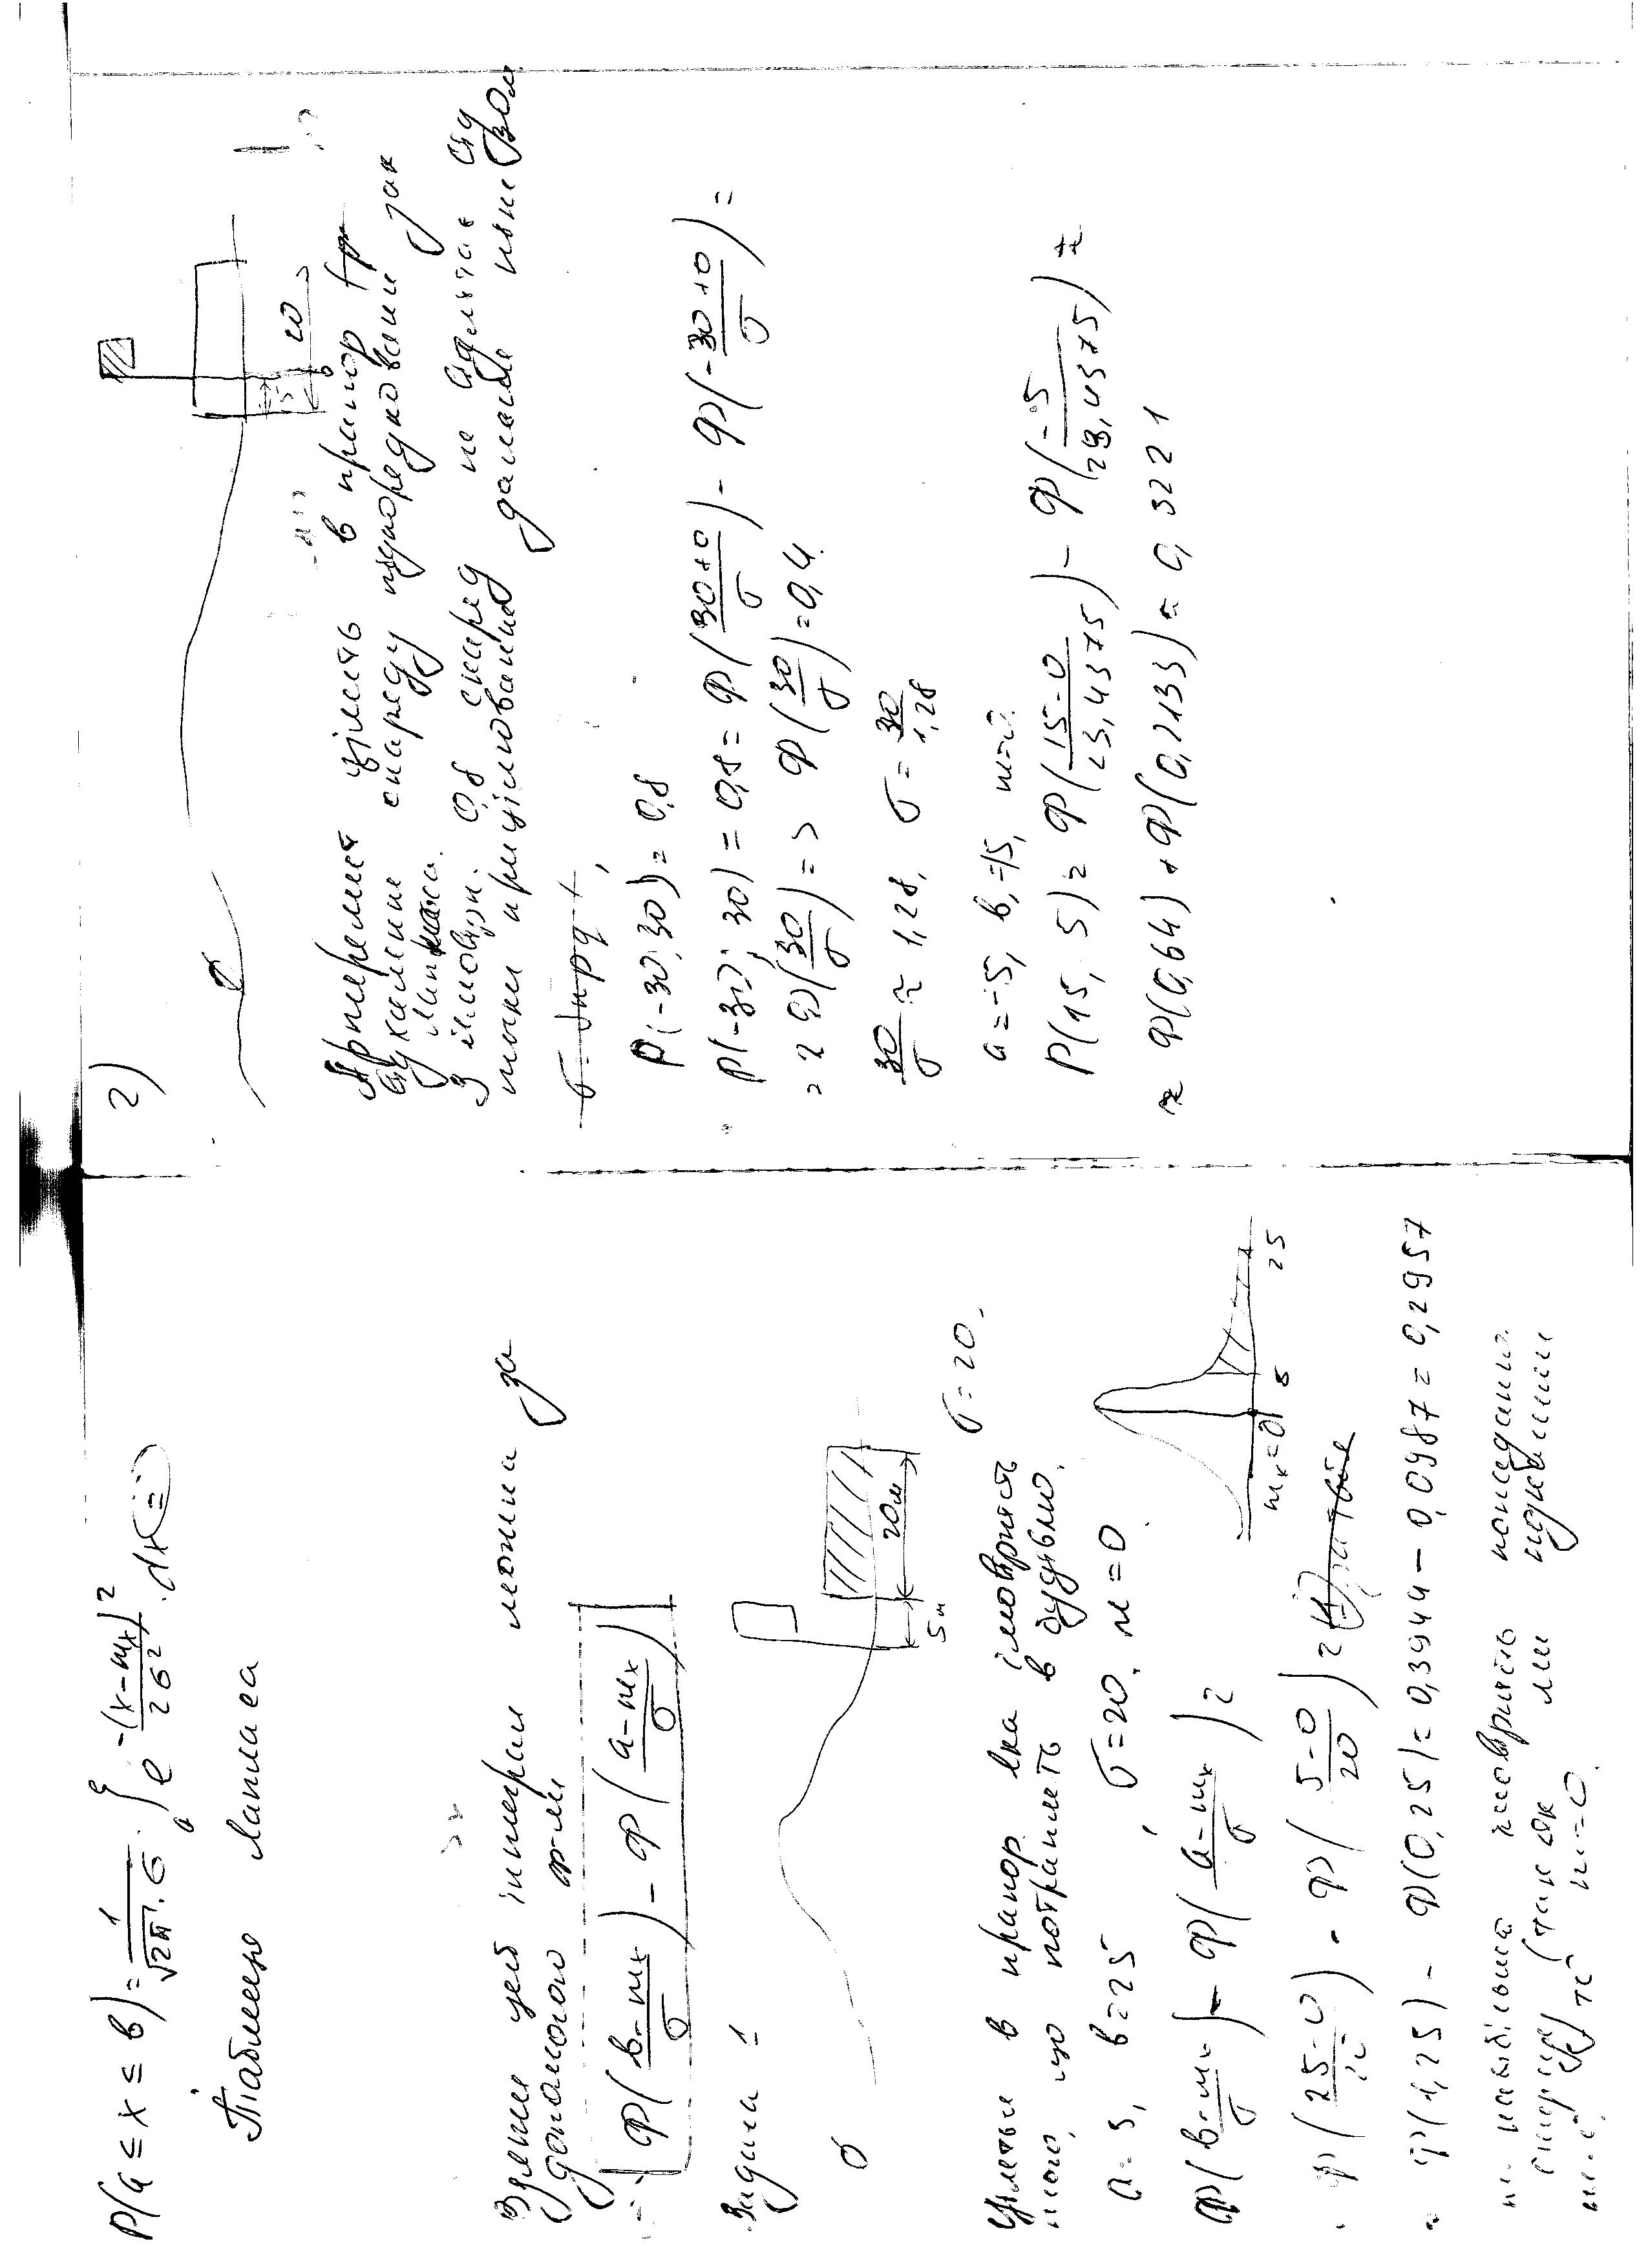 P(a ≤ x ≤ b) = 1/(√2π · σ) · ∫ₐᵇ e^(-(x-mₓ)²/2σ²) · dx =
Таблиця Лапласа
Взяти цей інтеграл можна за
допомогою ф-ли
= Ф((b-mₓ)/σ) - Ф((a-mₓ)/σ)
Задача 1
20м
5м
σ=20.
Цілять в прапор. Яка імовірність
того, що потрапить в будівлю.
a=5, b=25, σ=20. m=0
Ф((b-mₓ)/σ) - Ф((a-mₓ)/σ) =
mₓ=0 5 25
= Ф((25-0)/20) - Ф((5-0)/20) =
= Ф(1,25) - Ф(0,25) = 0,3944 - 0,0987 = 0,2957
найбільша імовірність попадання
(так як ми
m=0.
2)
5 20
Артилерист цілить в прапор
відхилення снаряду підпорядковані зак
Лапласа.
З імовірн. 0,8 снаряд не відлітає від
точки прицілювання дальше ніж 30м
P(-30; 30) = 0,8
P(-30; 30) = 0,8 = Ф((30+0)/σ) - Ф((-30+0)/σ) =
= 2Ф(30/σ) => Ф(30/σ) = 0,4.
30/σ ≈ 1,28, σ = 30/1,28
a=-5, b=15, m=0.
P(15, 5) = Ф((15-0)/23,4375) - Ф(-5/23,4375) ≈
≈ Ф(0,64) + Ф(0,2133) = 0,3221